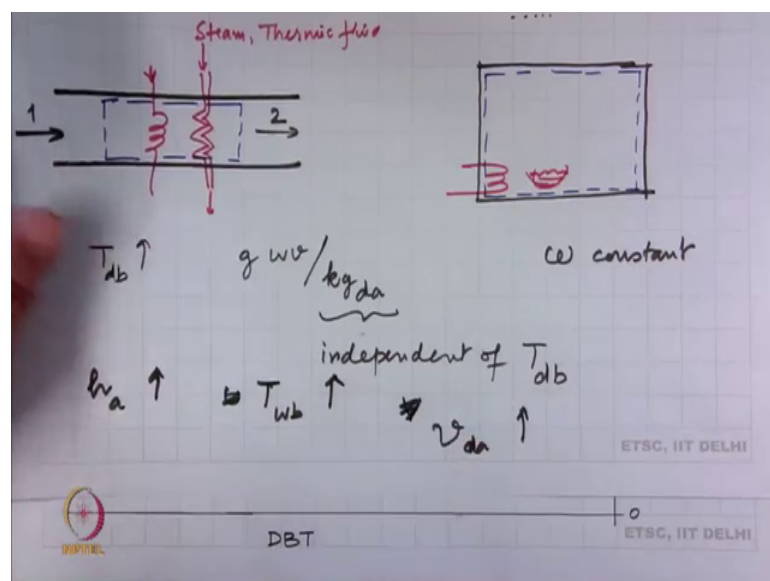 Steam, Thermic flui
1
2
T db ↑
g wv/kg da
ω constant
independent of T db
h a ↑
T wb ↑
v da ↑
ETSC, IIT DELHI
0
DBT
ETSC, IIT DELHI
NPTEL